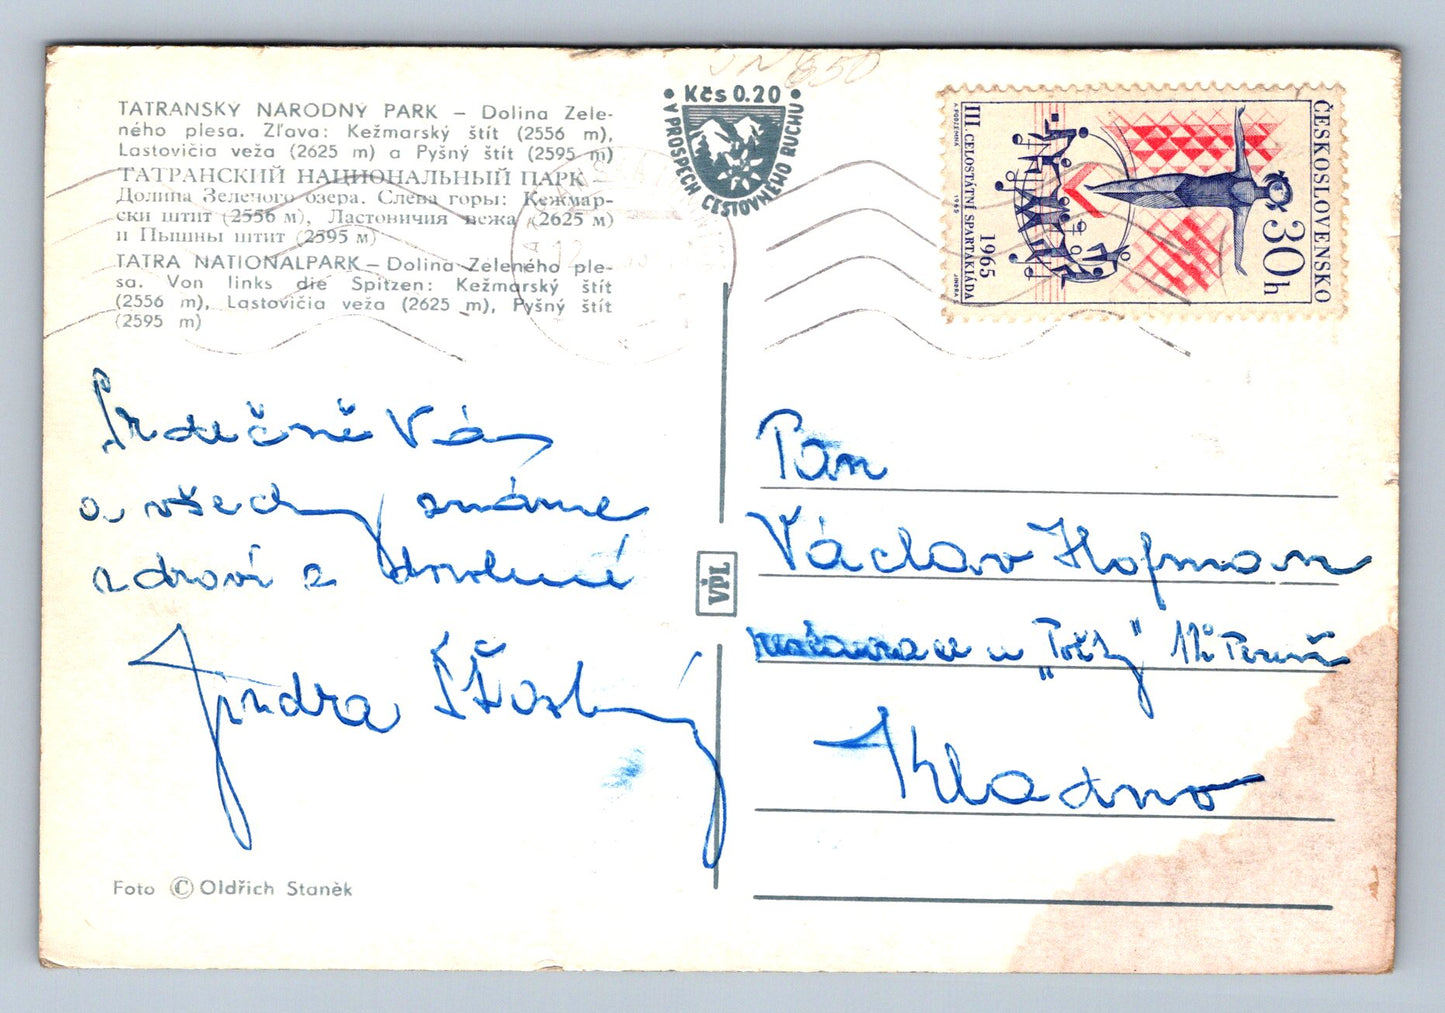 JN 650
TATRANSKÝ NÁRODNÝ PARK – Dolina Zele-
ného plesa. Zľava: Kežmarský štít (2556 m),
Lastovičia veža (2625 m) a Pyšný štít (2595 m)
ТАТРАНСКИЙ НАЦИОНАЛЬНЫЙ ПАРК –
Долина Зеленого озера. Слева горы: Кежмар-
ски штит (2556 м), Ластовичия вежа (2625 м)
и Пышны штит (2595 м)
TATRA NATIONALPARK – Dolina Zeleného ple-
sa. Von links die Spitzen: Kežmarský štít
(2556 m), Lastovičia veža (2625 m), Pyšný štít
(2595 m)
• Kčs 0.20 •
V PROSPECH CESTOVNÉHO RUCHU
ČESKOSLOVENSKO
30h
III. CELOSTÁTNÍ SPARTAKIÁDA
1965
A. PODZEMNÁ
1965
JINDRA
Srdečně Vás
a všechny známe
zdraví z dovolené
Jindra Šťastný
VPL
Pan
Václav Hofman
restaurace u „Pošty"
Kladno
Foto © Oldřich Staněk